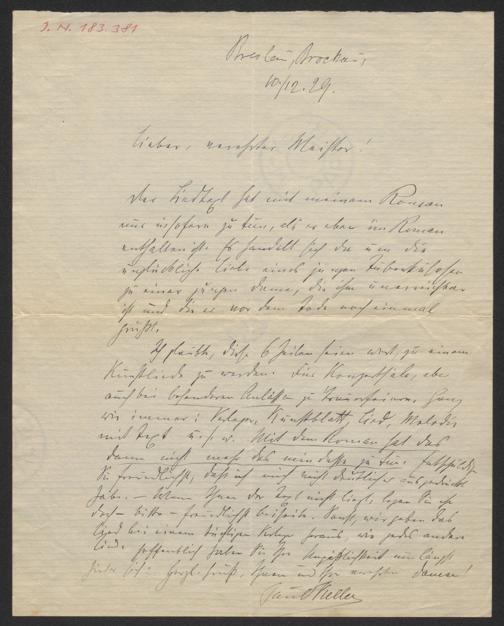 J. N. 183.381
Breslau, Brockau,
10/12.29.
Lieber, verehrter Meister!
Der Liedtext hat mit meinem Roman
nur insofern zu tun, als er eben im Roman
enthalten ist. Es handelt sich da um die
unglückliche Liebe eines jungen Tuberkulosen
zu einer jungen Dame, die ihm unerreichbar
ist und die er vor dem Tode noch einmal
grüßt.
Ich glaubte, diese 6 Zeilen seien wert, zu einem
Kunstliede zu werden. Für Konzertsäle, aber
auch bei besonderen Anlässen zu Trauerfeiern. Ganz
wie immer: Verleger, Kunstblatt, Lied, Melodie
mit Text u.s.w. Mit dem Roman hat das
dann nicht mehr das mindeste zu tun. Entschuldigen
Sie freundlichst, daß ich mich nicht deutlicher ausgedrückt
habe. – Wenn Ihnen der Text nicht liegt, legen Sie ihn
doch – bitte – freundlichst beiseite. Sonst, wir geben das
Lied bei einem tüchtigen Verlage heraus, wie jedes andere
Lied. Hoffentlich haben Sie Ihre Unpäßlichkeit nun längst
hinter sich. Herzl. Gruß, Ihnen und Ihren verehrten Damen!
Paul Keller